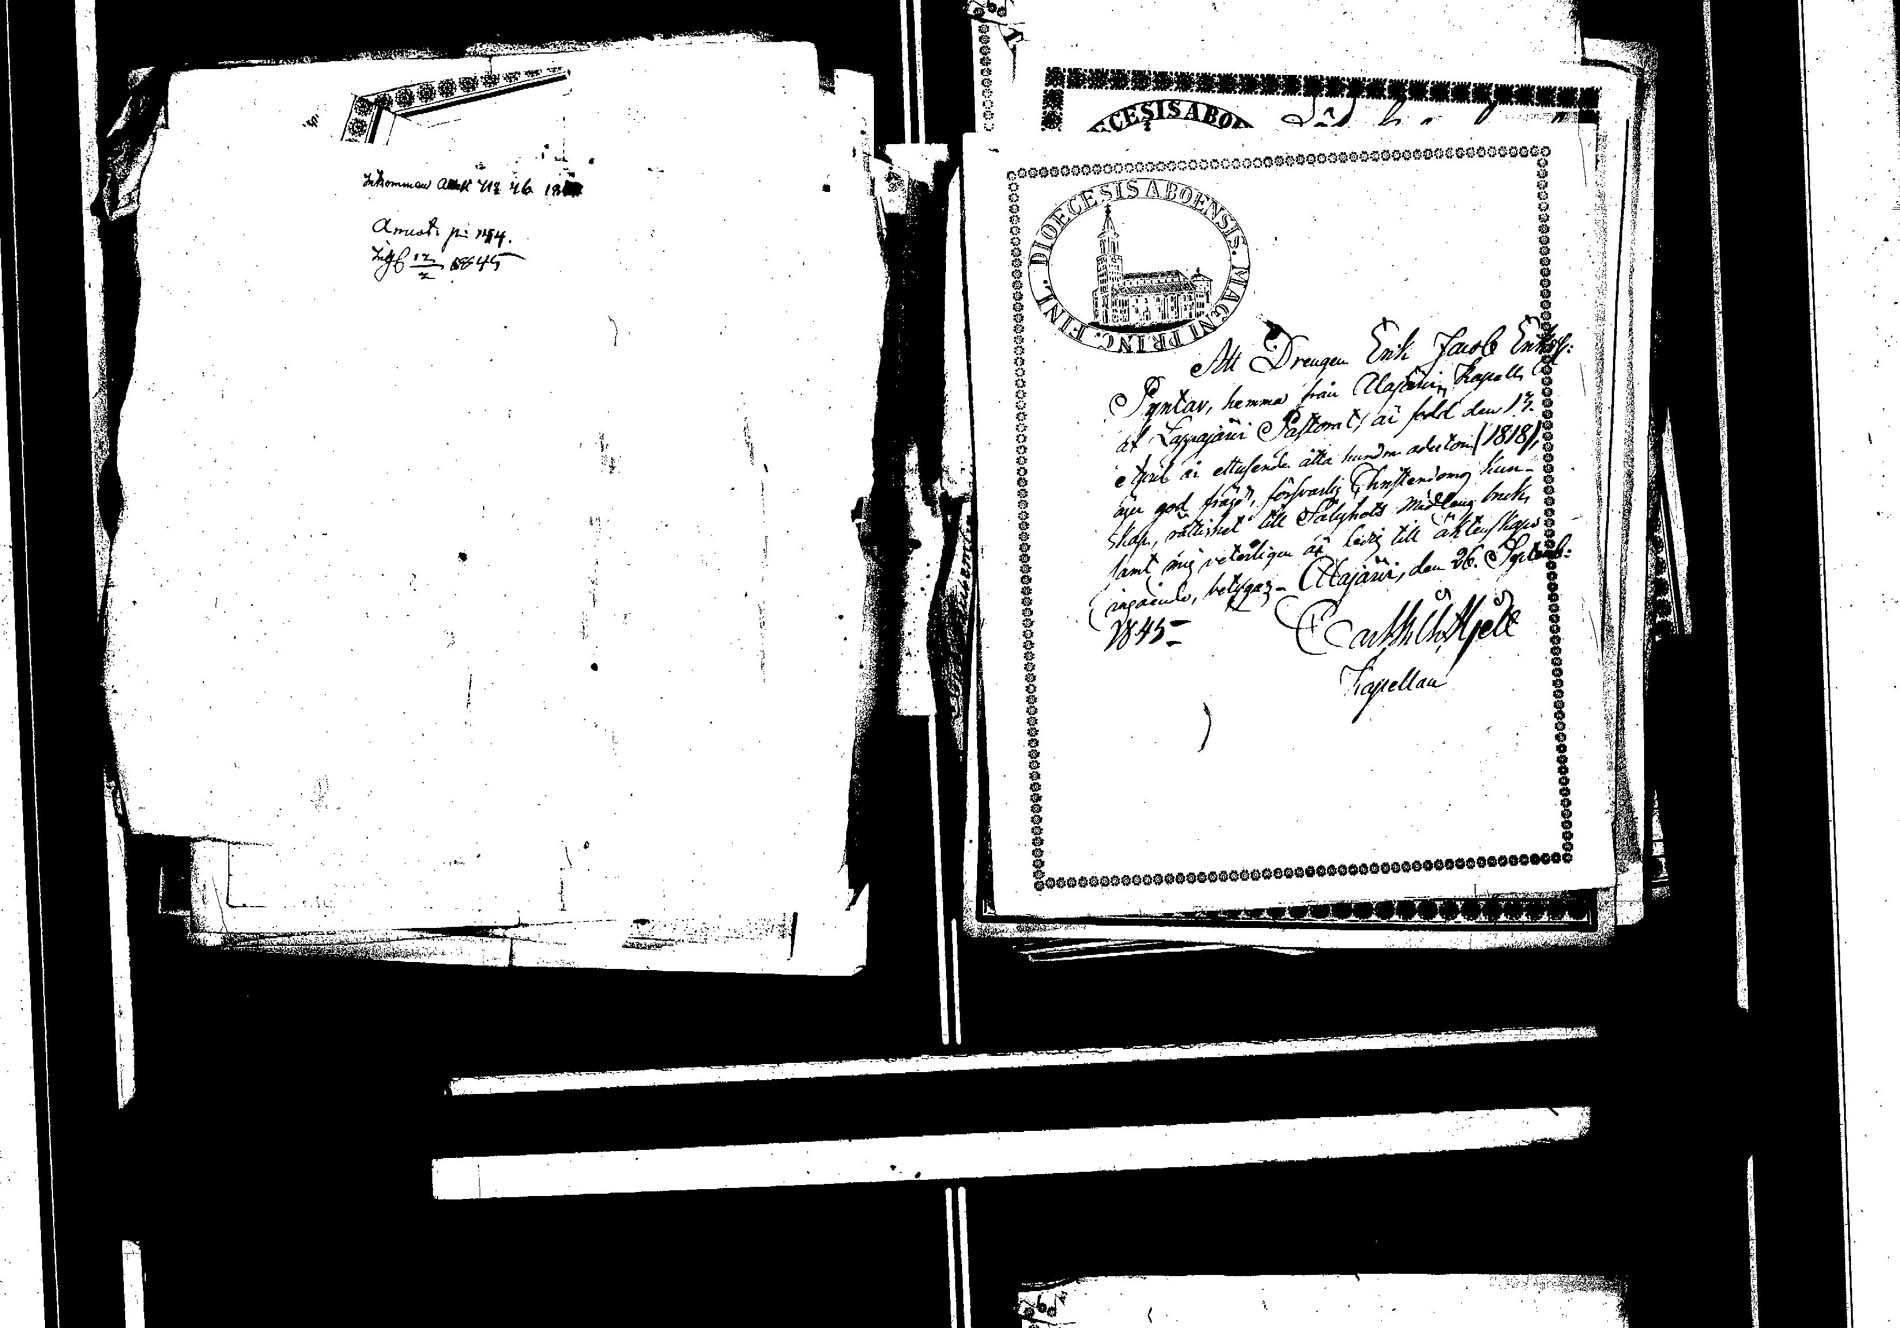 Inkommen attest No 46
Amust. på No 4.
Infl 12/2 1845
DIOECESIS ABOEN
DIOECESIS ABOENSIS. MAGNI PRINC. FINL.
Att Drengen Erik Jacob Eriks:
Pyntar, hemma från Alajärvi Kapell
af Lappajärvi Pastorat, är född den 13.
April år ettusende åtta hundra aderton (1818),
äger god frägd, försvarlig Christendoms kun-
skap, rättighet till Salighets Medlens bruk,
samt mig veterligen är ledig till äktenskaps
ingående, betygas – Alajärvi, den 26. Septemb:
1845 –
Hjelt
Kapellan